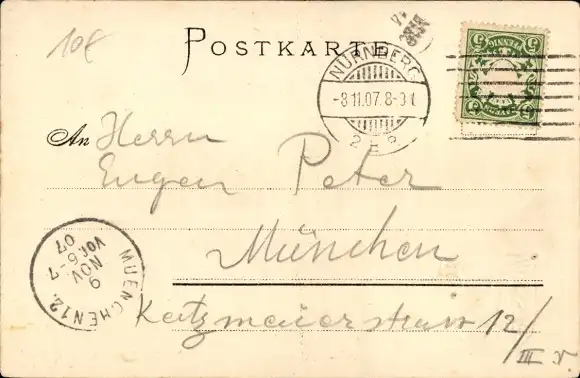 10€
POSTKARTE
NÜRNBERG
-8.11.07.8-9 V.
2 * B
PFENNIG
5
An Herrn
Eugen Peter
München
MUENCHEN 12.
9
NOV
Vor. 6-7
07
Katzmeierstrasse 12/
III r.